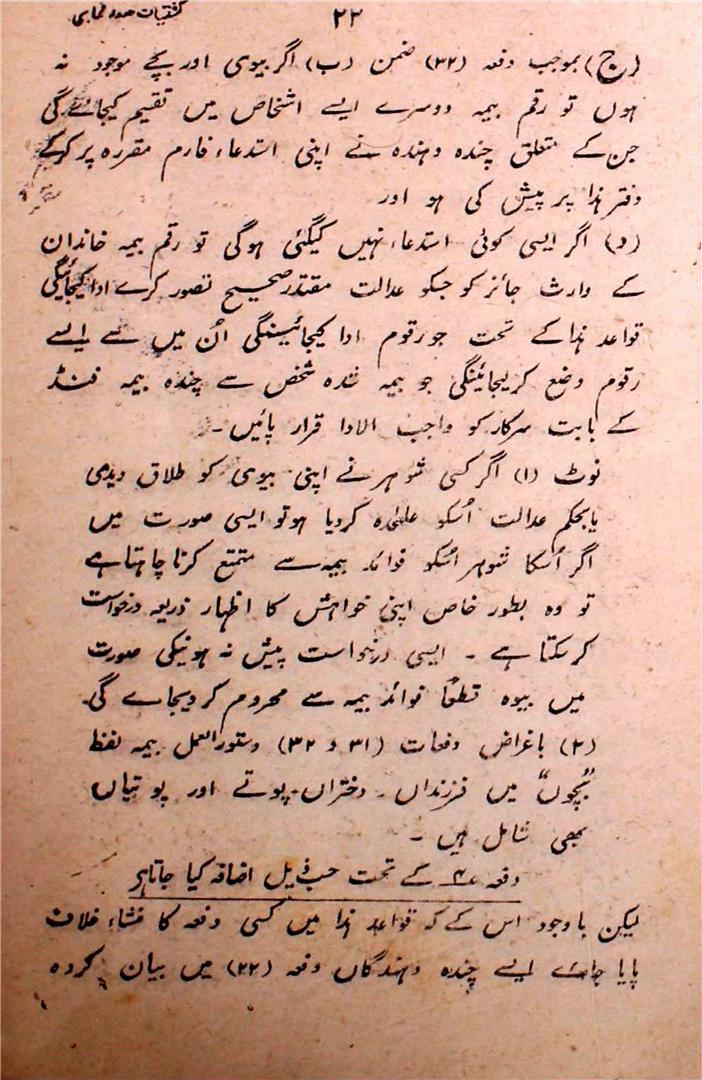 گشتیات صدر محاسبی
۲۲
(ج) بموجب دفعہ (۳۲) ضمن (ب) اگر بیوی اور بچے موجود نہ
ہوں تو رقم بیمہ دوسرے ایسے اشخاص میں تقسیم کیجائے گی
جن کے متعلق چندہ دہندہ نے اپنی استدعاء فارم مقررہ پر کرکے
دفتر ہذا پر پیش کی ہو اور
(د) اگر ایسی کوئی استدعاء نہیں کیگئی ہوگی تو رقم بیمہ خاندان
کے وارث جائز کو جسکو عدالت مقتدر صحیح تصور کرے ادا کیجائیگی
قواعد ہذا کے تحت جو رقوم ادا کیجائینگی اُن میں سے ایسے
رقوم وضع کریجائینگی جو بیمہ شدہ شخص سے چندہ بیمہ فنڈ
کے بابت سرکار کو واجب الادا قرار پائیں۔
نوٹ (۱) اگر کسی شوہر نے اپنی بیوی کو طلاق دیدی
یا بحکم عدالت اُسکو علٰحدہ کردیا ہو تو ایسی صورت میں
اگر اُسکا شوہر اُسکو فوائد بیمہ سے متمتع کرنا چاہتا ہے
تو وہ بطور خاص اپنی خواہش کا اظہار ذریعہ درخواست
کرسکتا ہے ۔ ایسی درخواست پیش نہ ہونیکی صورت
میں بیوہ قطعاً فوائد بیمہ سے محروم کردیجاے گی۔
(۲) باغراض دفعات (۳۱ و ۳۲) دستور العمل بیمہ لفظ
”بچوں“ میں فرزنداں ۔ دختراں ۔ پوتے اور پوتیاں
بھی شامل ہیں ۔
دفعہ کے تحت حسب ذیل اضافہ کیا جاتا ہے
لیکن باوجود اس کے کہ قواعد ہذا میں کسی دفعہ کا منشاء خلاف
پایا جاے ایسے چندہ دہندگاں دفعہ (۲۲) میں بیان کردہ